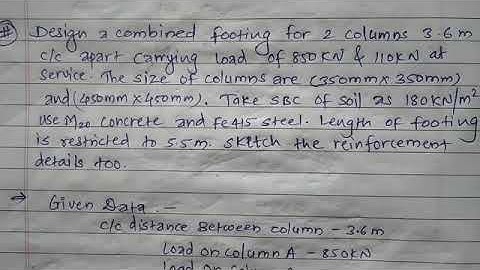 # Design a combined footing for 2 columns 3.6m
c/c apart carrying load of 850KN & 110KN at
service. The size of columns are (350mm x 350mm)
and (450mm x 450mm). Take SBC of soil as 180KN/m²
use M20 concrete and Fe415 steel. Length of footing
is restricted to 5.5m. sketch the reinforcement
details too.
→ Given Data :-
c/c distance Between column - 3.6m
Load on column A - 850KN